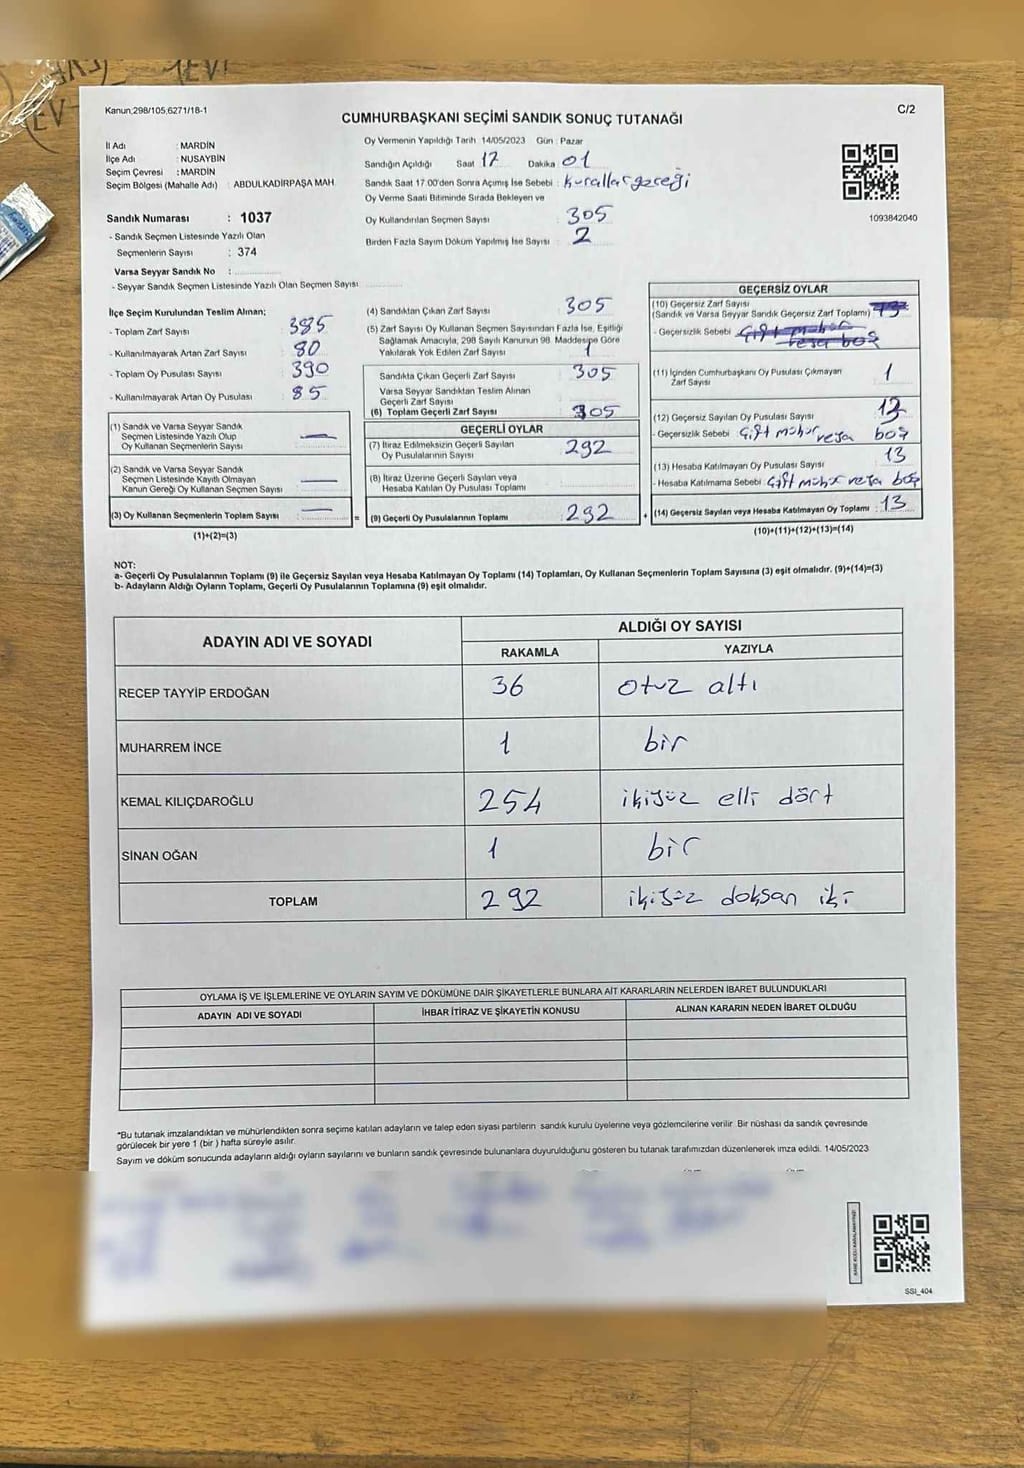 Kanun;298/105,6271/18-1
C/2
CUMHURBAŞKANI SEÇİMİ SANDIK SONUÇ TUTANAĞI
İl Adı : MARDİN
İlçe Adı : NUSAYBİN
Seçim Çevresi : MARDİN
Seçim Bölgesi (Mahalle Adı) : ABDULKADİRPAŞA MAH.
Sandık Numarası : 1037
- Sandık Seçmen Listesinde Yazılı Olan
Seçmenlerin Sayısı : 374
Varsa Seyyar Sandık No :
- Seyyar Sandık Seçmen Listesinde Yazılı Olan Seçmen Sayısı
Oy Vermenin Yapıldığı Tarih 14/05/2023 Gün : Pazar
Sandığın Açıldığı Saat 17 Dakika 01
Sandık Saat 17.00'den Sonra Açımış İse Sebebi : kurallar gereği
Oy Verme Saati Bitiminde Sırada Bekleyen ve
Oy Kullandırılan Seçmen Sayısı : 305
Birden Fazla Sayım Döküm Yapılmış İse Sayısı : 2
1093842040
İlçe Seçim Kurulundan Teslim Alınan;
- Toplam Zarf Sayısı : 385
- Kullanılmayarak Artan Zarf Sayısı : 80
- Toplam Oy Pusulası Sayısı : 390
- Kullanılmayarak Artan Oy Pusulası : 85
(1) Sandık ve Varsa Seyyar Sandık
Seçmen Listesinde Yazılı Olup
Oy Kullanan Seçmenlerin Sayısı
(2) Sandık ve Varsa Seyyar Sandık
Seçmen Listesinde Kayıtlı Olmayan
Kanun Gereği Oy Kullanan Seçmen Sayısı
(3) Oy Kullanan Seçmenlerin Toplam Sayısı
(1)+(2)=(3)
(4) Sandıktan Çıkan Zarf Sayısı : 305
(5) Zarf Sayısı Oy Kullanan Seçmen Sayısından Fazla İse, Eşitliği
Sağlamak Amacıyla, 298 Sayılı Kanunun 98. Maddesine Göre
Yakılarak Yok Edilen Zarf Sayısı 1
Sandıkta Çıkan Geçerli Zarf Sayısı 305
Varsa Seyyar Sandıktan Teslim Alınan
Geçerli Zarf Sayısı
(6) Toplam Geçerli Zarf Sayısı 305
GEÇERLİ OYLAR
(7) İtiraz Edilmeksizin Geçerli Sayılan
Oy Pusulalarının Sayısı 292
(8) İtiraz Üzerine Geçerli Sayılan veya
Hesaba Katılan Oy Pusulası Toplamı
= (9) Geçerli Oy Pusulalarının Toplamı : 292
GEÇERSİZ OYLAR
(10) Geçersiz Zarf Sayısı
(Sandık ve Varsa Seyyar Sandık Geçersiz Zarf Toplamı)
- Geçersizlik Sebebi
(11) İçinden Cumhurbaşkanı Oy Pusulası Çıkmayan
Zarf Sayısı 1
(12) Geçersiz Sayılan Oy Pusulası Sayısı
- Geçersizlik Sebebi : çift mühür veya boş
(13) Hesaba Katılmayan Oy Pusulası Sayısı 13
- Hesaba Katılmama Sebebi çift mühür veya boş
+ (14) Geçersiz Sayılan veya Hesaba Katılmayan Oy Toplamı : 13
(10)+(11)+(12)+(13)=(14)
NOT:
a- Geçerli Oy Pusulalarının Toplamı (9) ile Geçersiz Sayılan veya Hesaba Katılmayan Oy Toplamı (14) Toplamları, Oy Kullanan Seçmenlerin Toplam Sayısına (3) eşit olmalıdır. (9)+(14)=(3)
b- Adayların Aldığı Oyların Toplamı, Geçerli Oy Pusulalarının Toplamına (9) eşit olmalıdır.
ADAYIN ADI VE SOYADI
ALDIĞI OY SAYISI
RAKAMLA YAZIYLA
RECEP TAYYİP ERDOĞAN 36 otuz altı
MUHARREM İNCE 1 bir
KEMAL KILIÇDAROĞLU 254 ikiyüz elli dört
SİNAN OĞAN 1 bir
TOPLAM 292 ikiyüz doksan iki
OYLAMA İŞ VE İŞLEMLERİNE VE OYLARIN SAYIM VE DÖKÜMÜNE DAİR ŞİKAYETLERLE BUNLARA AİT KARARLARIN NELERDEN İBARET BULUNDUKLARI
ADAYIN ADI VE SOYADI İHBAR İTİRAZ VE ŞİKAYETİN KONUSU ALINAN KARARIN NEDEN İBARET OLDUĞU
*Bu tutanak imzalandıktan ve mühürlendikten sonra seçime katılan adayların ve talep eden siyasi partilerin sandık kurulu üyelerine veya gözlemcilerine verilir. Bir nüshası da sandık çevresinde
görülecek bir yere 1 (bir ) hafta süreyle asılır.
Sayım ve döküm sonucunda adayların aldığı oyların sayılarını ve bunların sandık çevresinde bulunanlara duyurulduğunu gösteren bu tutanak tarafımızdan düzenlenerek imza edildi. 14/05/2023
SSI_404